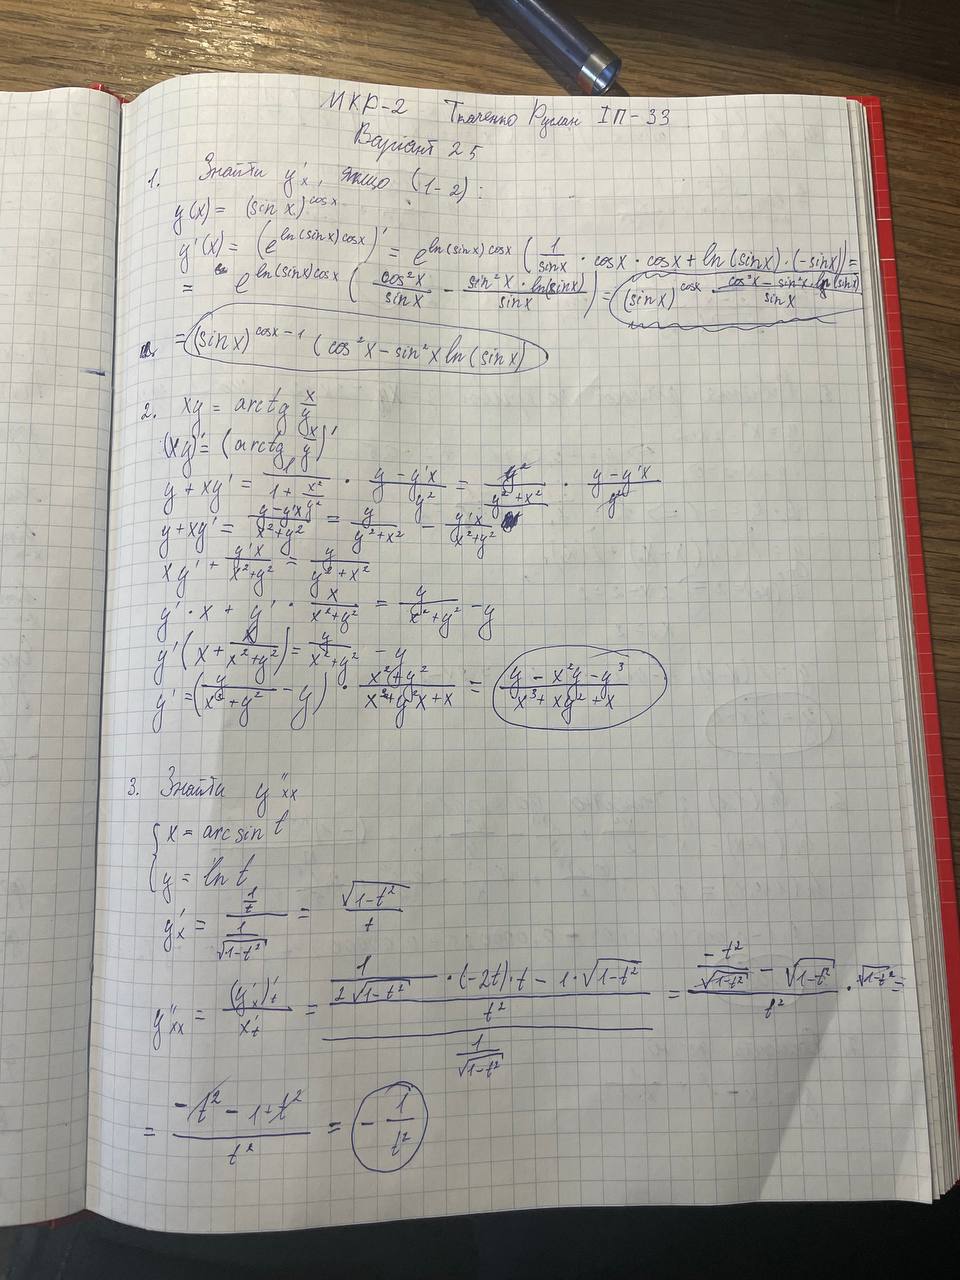 МКР-2 Ткаченко Руслан ІП-33
Варіант 25
1. Знайти y'ₓ, якщо (1-2):
y(x) = (sin x)^cosx
y'(x) = (e^ln(sinx)cosx)' = e^ln(sinx)cosx (1/sinx · cosx · cosx + ln(sinx)·(-sinx)) =
= e^ln(sinx)cosx (cos²x/sinx - sin²x·ln(sinx)/sinx) = (sinx)^cosx · (cos²x - sin²x·ln(sinx))/sinx
= (sinx)^(cosx-1) (cos²x - sin²x ln(sinx)
2. xy = arctg x/y
(xy)' = (arctg x/y)'
y + xy' = 1/(1 + x²/y²) · (y - y'x)/y² = y²/(y² + x²) · (y - y'x)/y²
y + xy' = (y - y'x)/(x² + y²) = y/(y² + x²) - y'x/(x² + y²)
xy' + y'x/(x² + y²) = y/(y² + x²)
y' · x + y' · x/(x² + y²) = y/(x² + y²) - y
y' (x + x/(x² + y²)) = y/(x² + y²) - y
y' = (y/(x² + y²) - y) · (x² + y²)/(x³ + y²x + x) = (y - x²y - y³)/(x³ + xy² + x)
3. Знайти y''ₓₓ
{ x = arcsin t
y = ln t
y'ₓ = (1/t)/(1/√(1-t²)) = √(1-t²)/t
y''ₓₓ = (y'ₓ)'t/x't = ((1/(2√(1-t²)) · (-2t)·t - 1·√(1-t²))/t²)/(1/√(1-t²)) = (-t²/√(1-t²) - √(1-t²))/t² · √(1-t²) =
= (-t² - 1 + t²)/t² = - 1/t²